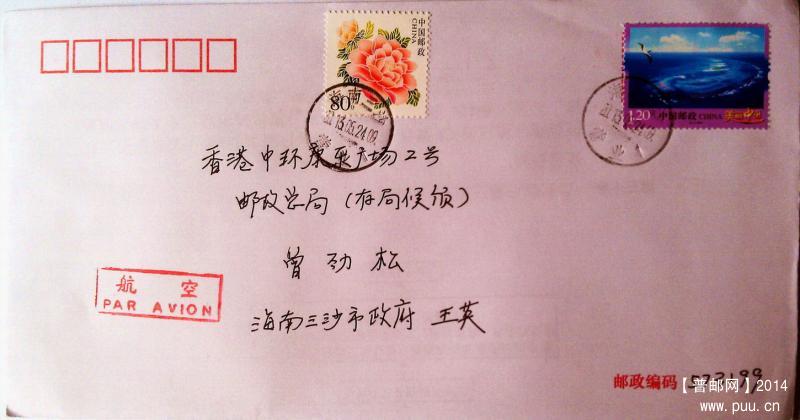 中国邮政
CHINA
80分
1.20元 中国邮政 CHINA 美丽中国
2015.05.24.09
香港中环康乐广场2号
邮政总局（存局候领）
曾劲松
航空
PAR AVION
海南三沙市政府 王英
邮政编码 573199
【普邮网】2014
www.puu.cn